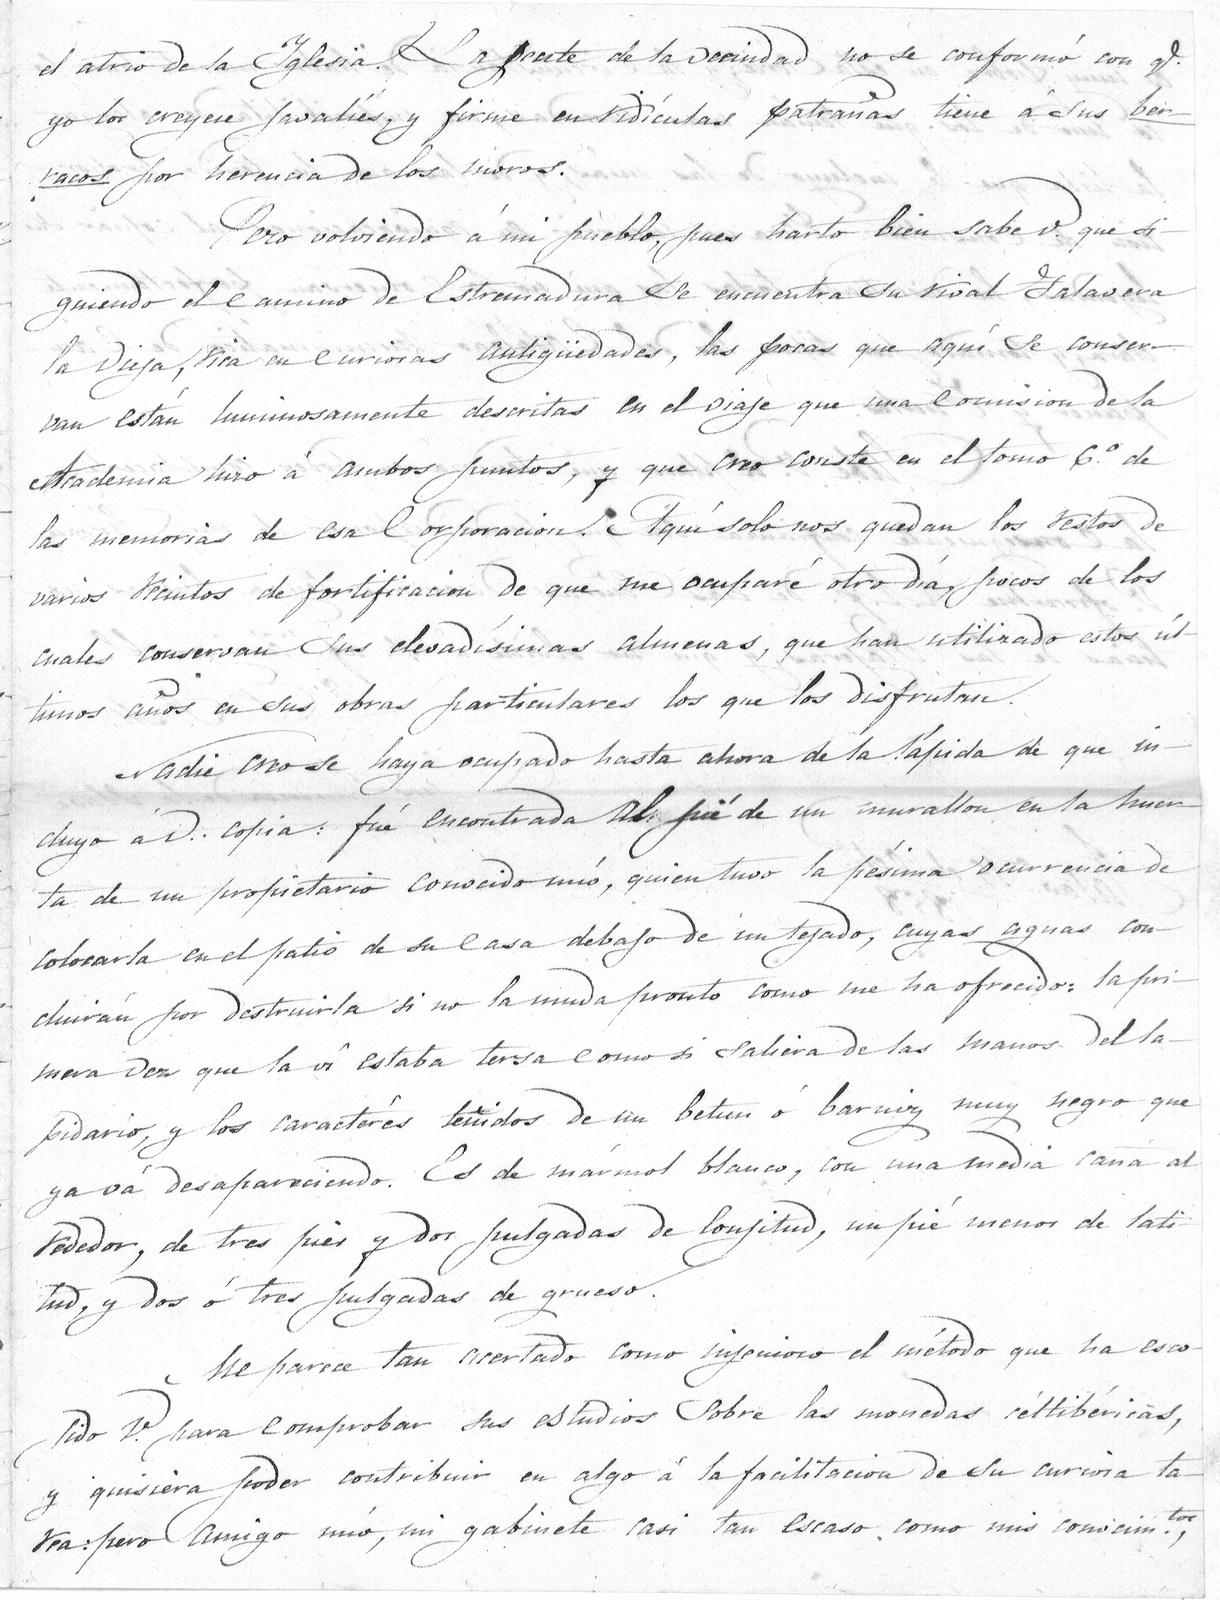 el atrio de la Yglesia. La gente de la vecindad no se conformó con q.e
yo los creyese javalíes, y firme en ridículas patrañas tiene á sus ber-
racos por herencia de los moros.
Pero volviendo á mi pueblo, pues harto bien sabe V. que si-
guiendo el camino de Estremadura se encuentra su rival Talavera
la Vieja, rica en curiosas antigüedades, las pocas que aquí se conser-
van están luminosamente descritas en el viaje que una Comision de la
Academia hizo á ambos puntos, y que creo conste en el tomo 6.º de
las memorias de esa Corporacion. Aquí solo nos quedan los restos de
varios recintos de fortificacion de que me ocuparé otro día, pocos de los
cuales conservan sus elevadísimas almenas, que han utilizado estos úl-
timos años en sus obras particulares los que los disfrutan.
Nadie creo se haya ocupado hasta ahora de la lápida de que in-
cluyo á V. copia: fué encontrada al pié de un murallon en la huer-
ta de un propietario conocido mío, quien tuvo la pésima ocurrencia de
colocarla en el patio de su casa debajo de un tejado, cuyas aguas con-
cluirán por destruirla si no la muda pronto como me ha ofrecido: la pri-
mera vez que la ví estaba tersa como si saliera de las manos del la-
pidario, y los caractéres teñidos de un betun ó barniz muy negro que
ya vá desapareciendo. Es de mármol blanco, con una media caña al
rededor, de tres pies y dos pulgadas de lonjitud, un pié menos de lati-
tud, y dos ó tres pulgadas de grueso.
Me parece tan acertado como injenioso el método que ha esco-
jido V. para comprobar sus estudios sobre las monedas céltibéricas,
y quisiera poder contribuir en algo á la facilitacion de su curiosa ta-
rea: pero amigo mío, mi gabinete casi tan escaso como mis conocim.tos,